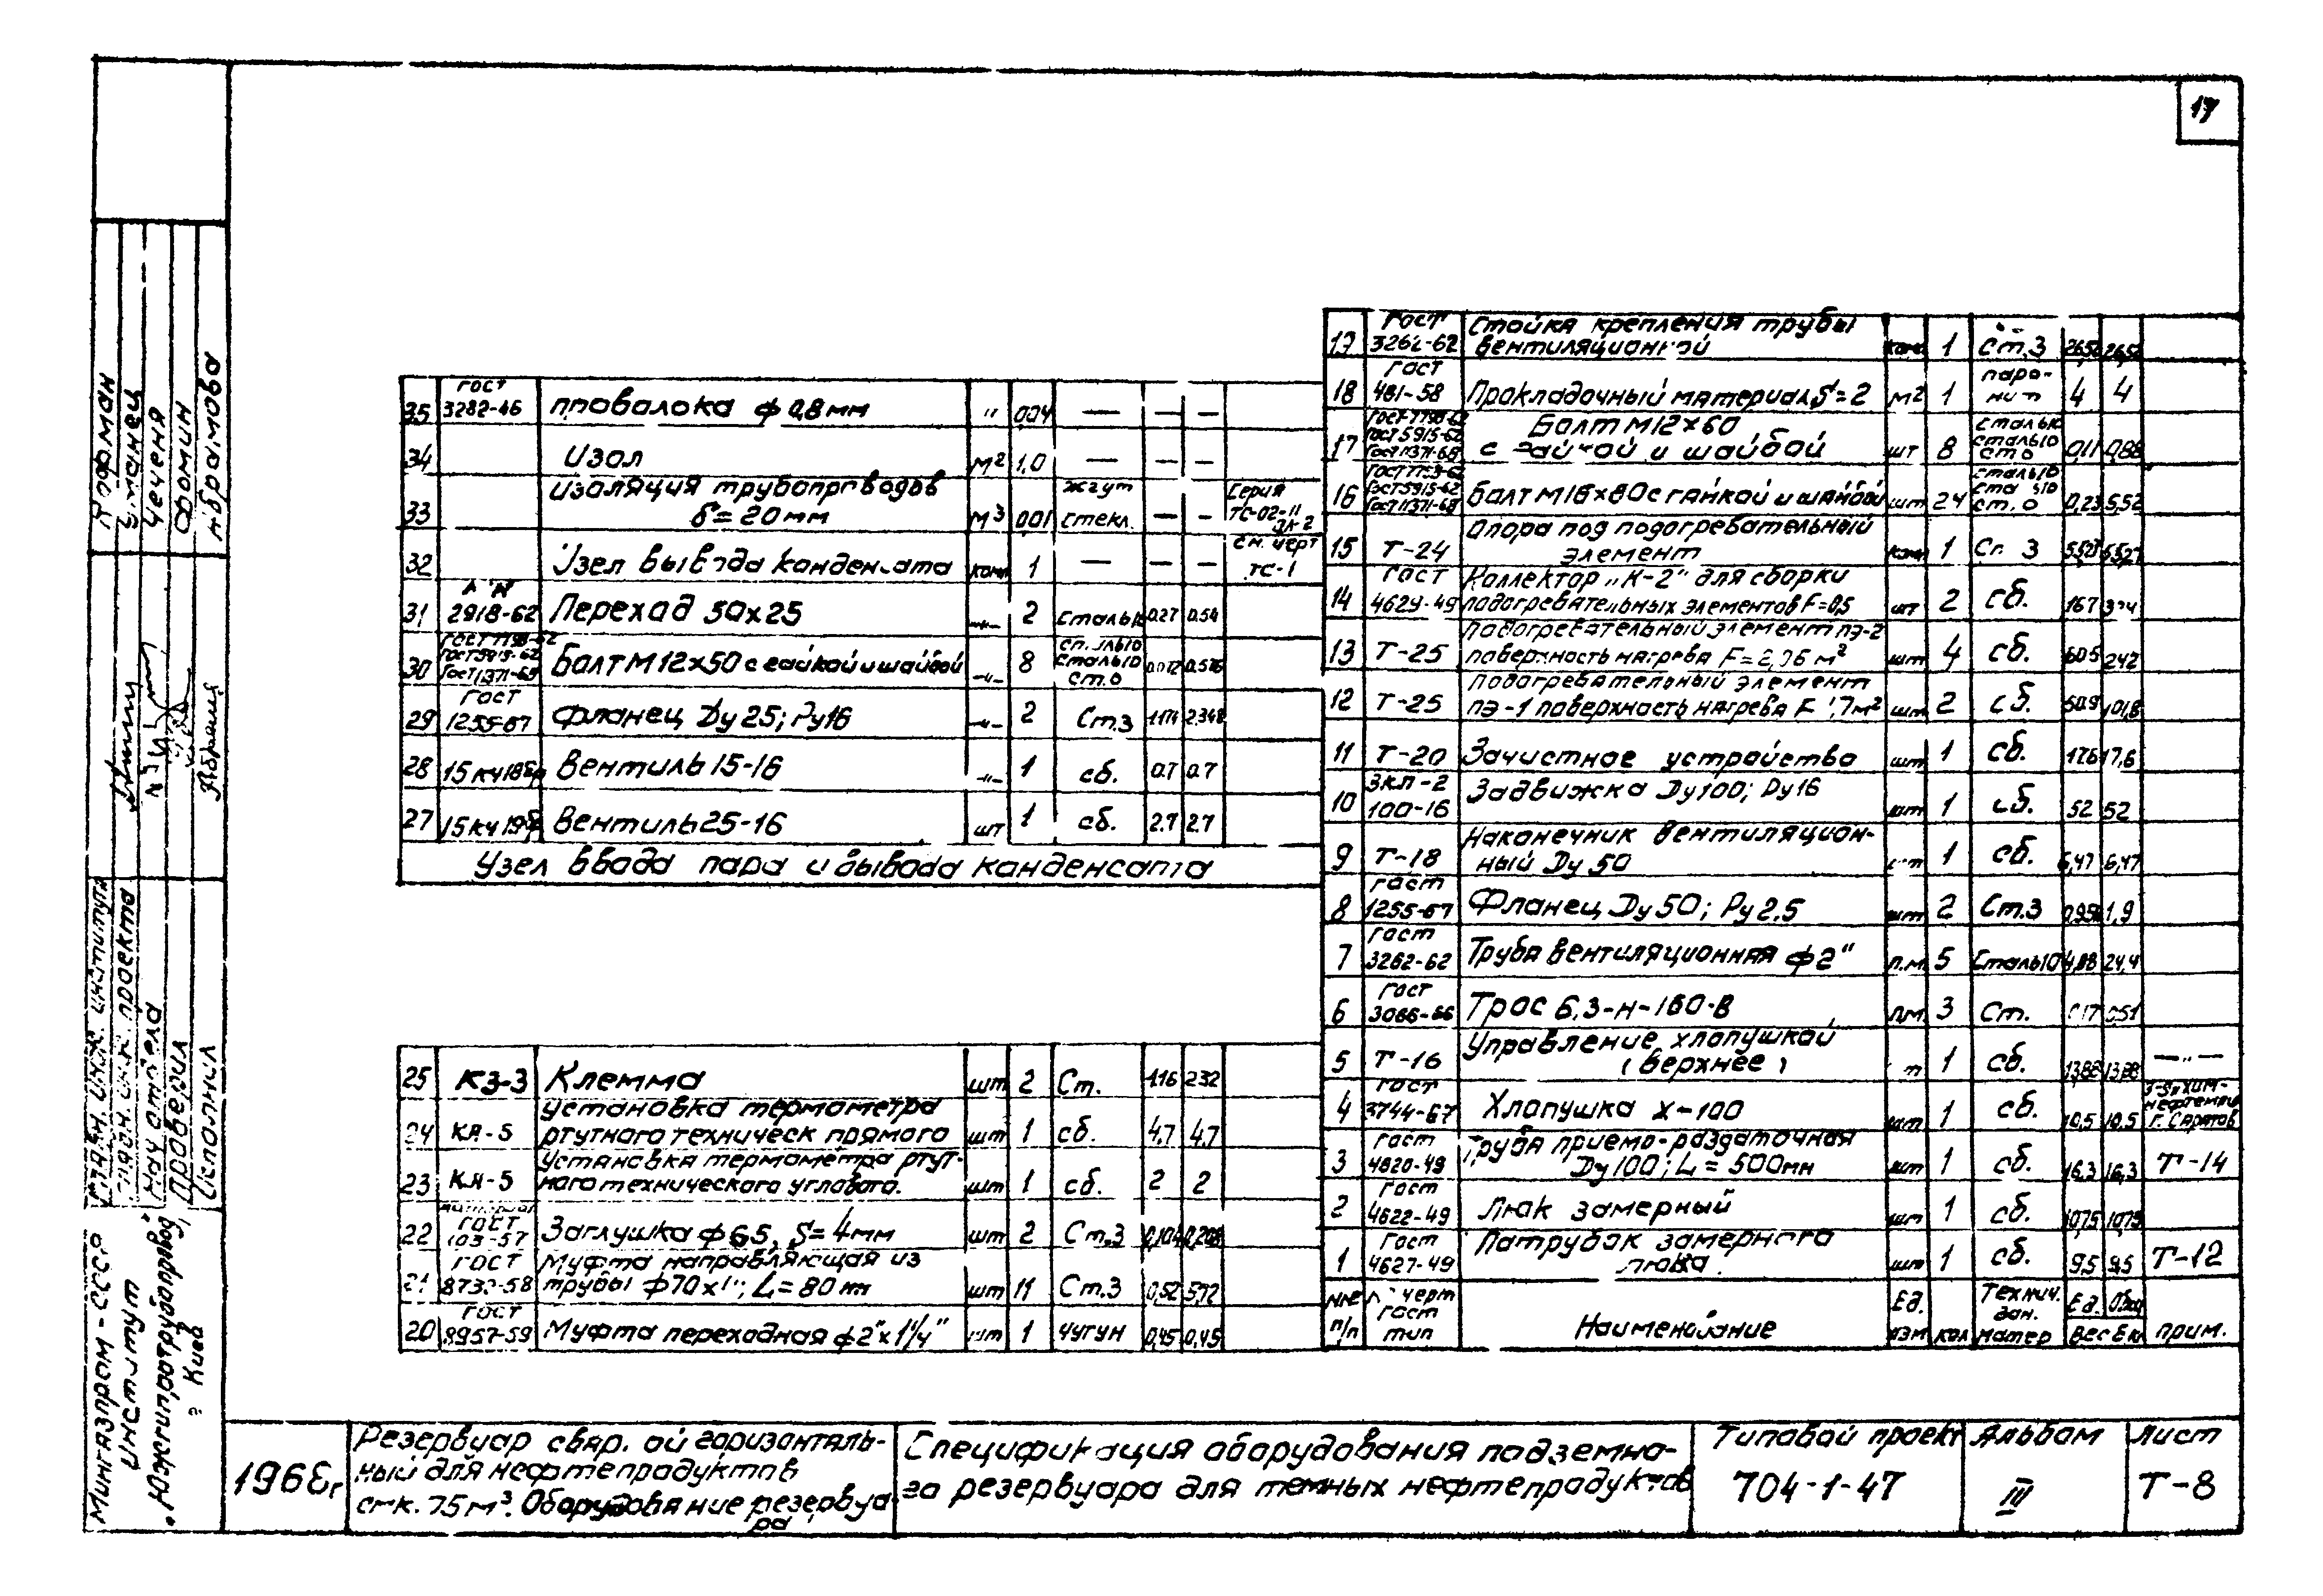 17
35 ГОСТ 3282-46 проволока ф 0,8 мм " 0,04 — — —
34 Изол м² 1,0 — — —
33 изоляция трубопроводов δ = 20 мм м³ 0,01 жгут стекл. — — Серия ТС-02-11
32 Узел вывода конденсата комп 1 — — — см. черт ТС-1
31 2918-62 Переход 50х25 -"- 2 Сталь10 0.27 0.54
30 ГОСТ 7798-62 ГОСТ 5915-62 ГОСТ 11371-68 Болт М12х50 с гайкой и шайбой -"- 8 Сталь10 Ст.0 0.072 0.576
29 ГОСТ 1255-67 Фланец Ду 25; Ру16 -"- 2 Ст.3 1.174 2.348
28 15кч18бр Вентиль 15-16 -"- 1 сб. 0.7 0.7
27 15кч19бр Вентиль 25-16 шт 1 сб. 2.7 2.7
Узел ввода пара и вывода конденсата
25 КЗ-3 Клемма шт 2 Ст. 1.16 2.32
24 КЯ-5 Установка термометра ртутного техническ прямого шт 1 сб. 4,7 4,7
23 КЯ-5 Установка термометра ртут-
ного технического углового. шт 1 сб. 2 2
22 ГОСТ 103-57 Заглушка ф 65, S = 4мм шт 2 Ст.3 0,104 0,208
21 ГОСТ 8732-58 Муфта направляющая из
трубы ф70х1"; L = 80 мм шт 11 Ст.3 0,52 5,72
20 ГОСТ 8957-59 Муфта переходная ф 2"х 1¼" шт 1 чугун 0,45 0,45
19 ГОСТ 3262-62 Стойка крепления трубы
вентиляционной комп 1 Ст.3 26,52 26,52
18 ГОСТ 481-58 Прокладочный материал S = 2 м² 1 паро-
нит 4 4
17 ГОСТ 7798-62 ГОСТ 5915-62 ГОСТ 11371-68 Болт М12х60
с гайкой и шайбой шт 8 сталь10 сталь10 ст 0 0,11 0,88
16 ГОСТ 7798-62 ГОСТ 5915-62 ГОСТ 11371-68 Болт М16х80 с гайкой и шайбой шт 24 сталь10 сталь10 ст. 0 0,23 5,52
15 Т-24 Опора под подогревательный
элемент комп 1 Ст 3
14 ГОСТ 4629-49 Коллектор „К-2" для сборки
подогревательных элементов F = 0,5 шт 2 сб. 167 334
13 Т-25 Подогревательный элемент ПЭ-2
поверхность нагрева F = 2,06 м² шт 4 сб. 60.5 242
12 Т-25 Подогревательный элемент
ПЭ-1 поверхность нагрева F 1,7м² шт 2 сб. 50.9 101,8
11 Т-20 Зачистное устройство шт 1 сб. 17.6 17,6
10 ЗКЛ-2 100-16 Задвижка Ду100; Ру16 шт 1 сб. 52 52
9 Т-18 Наконечник вентиляцион-
ный Ду 50 шт 1 сб. 6,47 6,47
8 ГОСТ 1255-67 Фланец Ду 50; Ру 2,5 шт 2 Ст.3 0,95 1,9
7 ГОСТ 3262-62 Труба вентиляционная ф 2" п.м. 5 Сталь10 4,88 24,4
6 ГОСТ 3066-66 Трос 6,3-н-160-В п.м. 3 Ст. 0,17 0,51
5 Т-16 Управление хлопушкой
(верхнее) шт 1 сб. 13,88 13,88 —"—
4 ГОСТ 3744-67 Хлопушка Х-100 шт 1 сб. 10,5 10,5 З-д „Хим-
нефтемаш г. Саратов
3 ГОСТ 4620-49 Труба приемо-раздаточная
Ду100; L = 500мм шт 1 сб. 16,3 16,3 Т-14
2 ГОСТ 4622-49 Люк замерный шт 1 сб. 10,75 10,75
1 ГОСТ 4627-49 Патрубок замерного
люка. шт 1 сб. 9,5 9,5 Т-12
№№ п/п № черт гост тип Наименование Ед. изм кол Технич. дан. матер Ед. Общ Вес в кг прим.
Абрамова
Фомин
Провeрил
Исполнил
Мингазпром - СССР
Институт
„Южгипронефтепровод"
г Киев
1968г
Резервуар свар. ой горизонталь-
ный для нефтепродуктов
емк. 75 м³. Оборудование резервуа-
ра
Спецификация оборудования подземно-
го резервуара для темных нефтепродуктов
Типовой проект
704-1-47
Альбом
III
Лист
Т-8